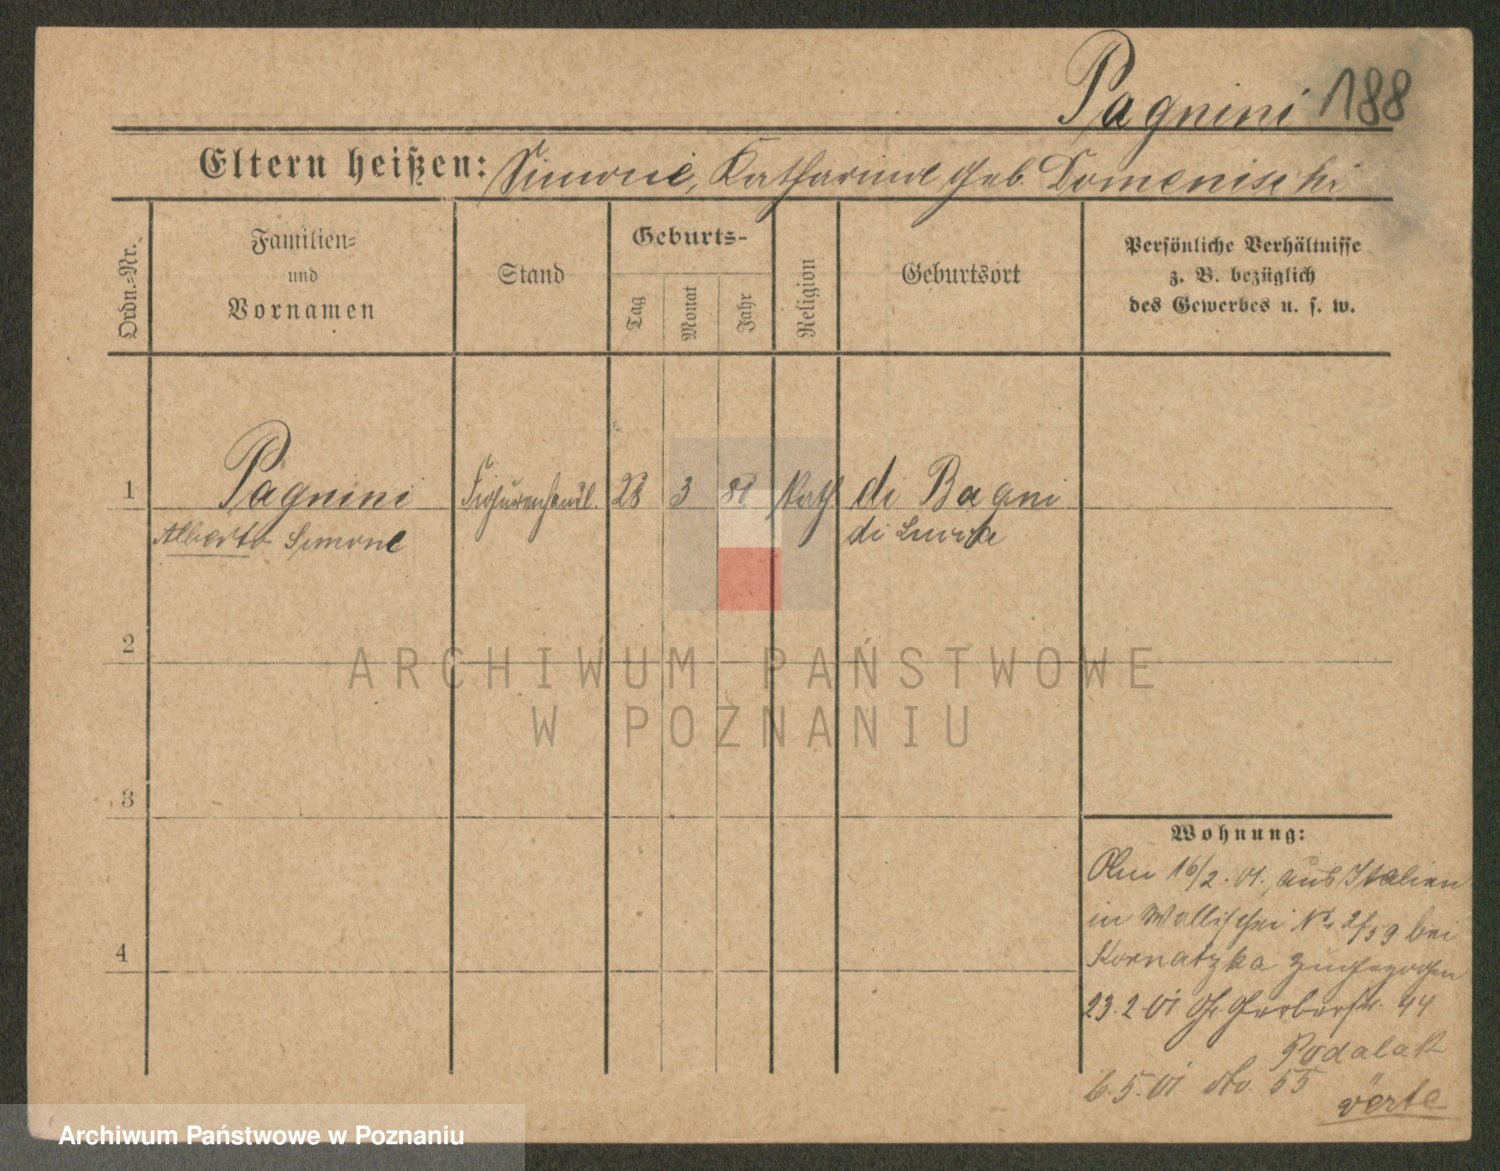 Pagnini 188
Eltern heißen: Simone, Katharine geb. Domenischi
Ordn.-Nr.
Familien-
und
Vornamen
Stand
Geburts-
Tag
Monat
Jahr
Religion
Geburtsort
Persönliche Verhältnisse
z. B. bezüglich
des Gewerbes u. s. w.
1 Pagnini Figurenhändl. 28 3 81 Kath. di Bagni
Alberto Simone di Lucca
2
ARCHIWUM PAŃSTWOWE
W POZNANIU
3
4
Wohnung:
Am 16/2. 01. aus Italien
in Wallischei No 2/59 bei
Kornatzka zugezogen
23.2.01 Gr. Gerberstr. 44
Podalak
6.5.01 dto. 55
verte
Archiwum Państwowe w Poznaniu